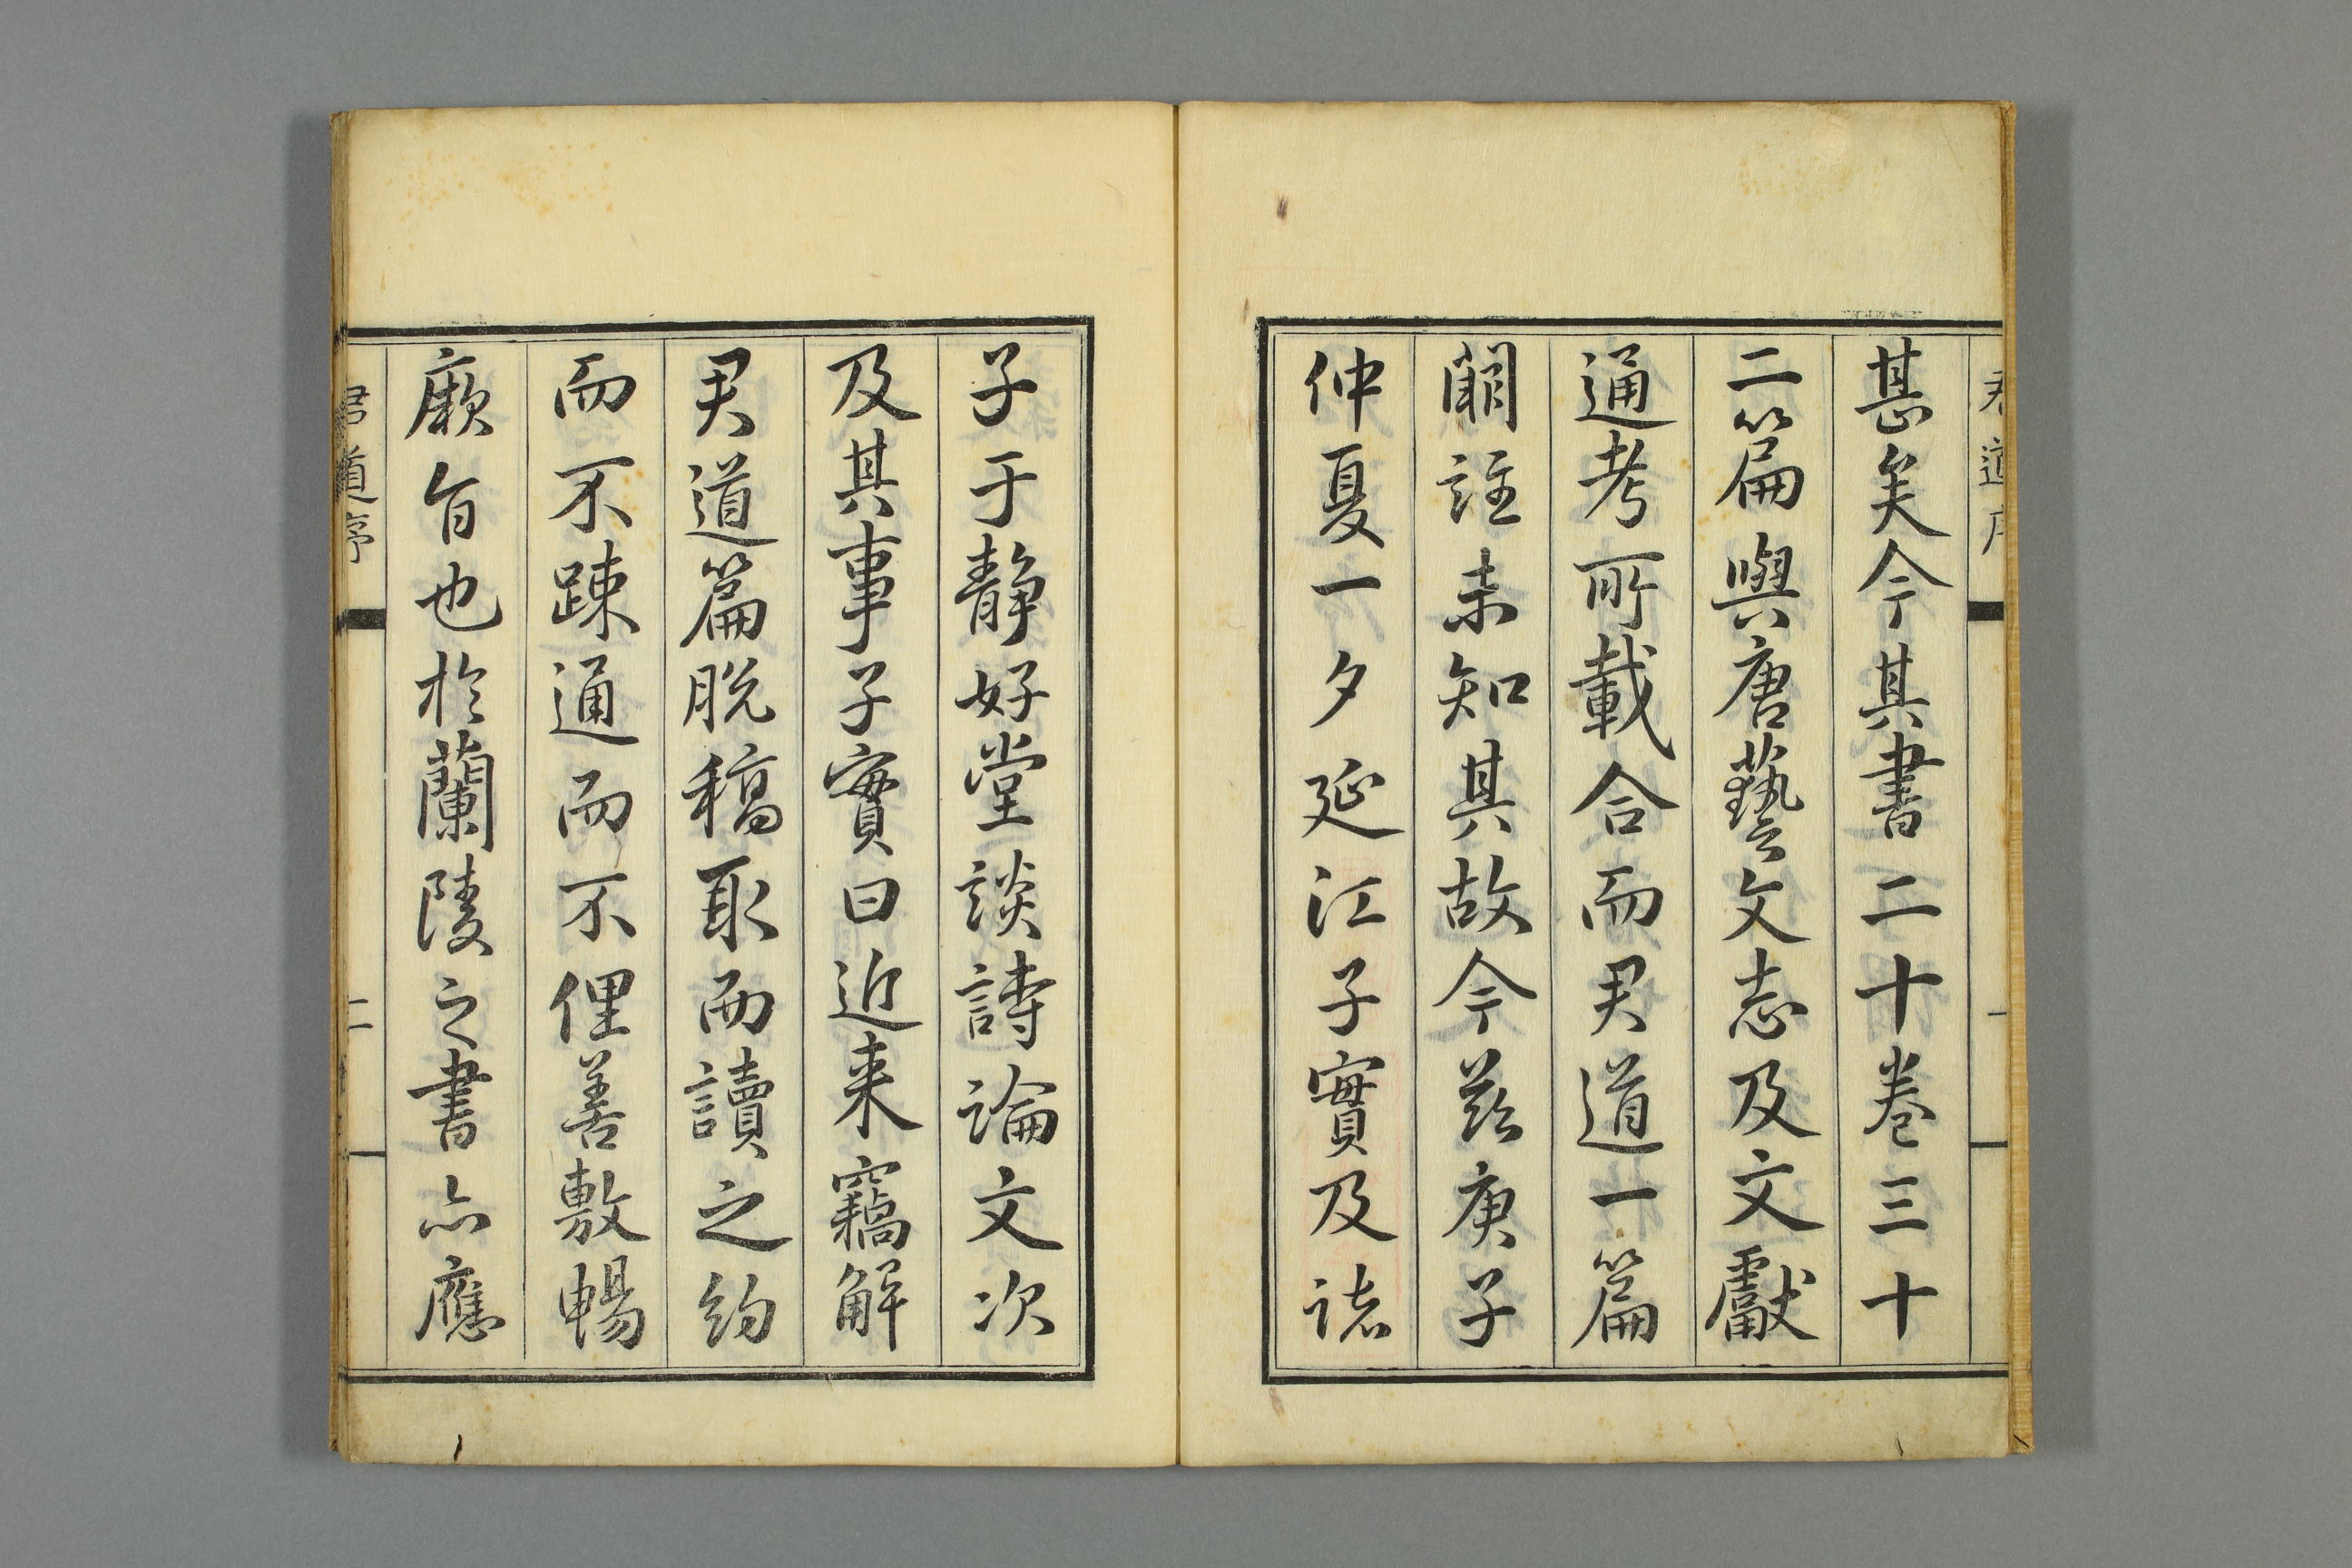 君道序
一
甚矣今其書二十卷三十
二篇與唐藝文志及文獻
通考所載合而君道一篇
闕註未知其故今玆庚子
仲夏一夕延江子實及諸
子于靜好堂談詩論文次
及其事子實曰近来竊解
君道篇脱稿取而讀之約
而不踈通而不俚善敷暢
厥旨也於蘭陵之書亦應
君道序
二